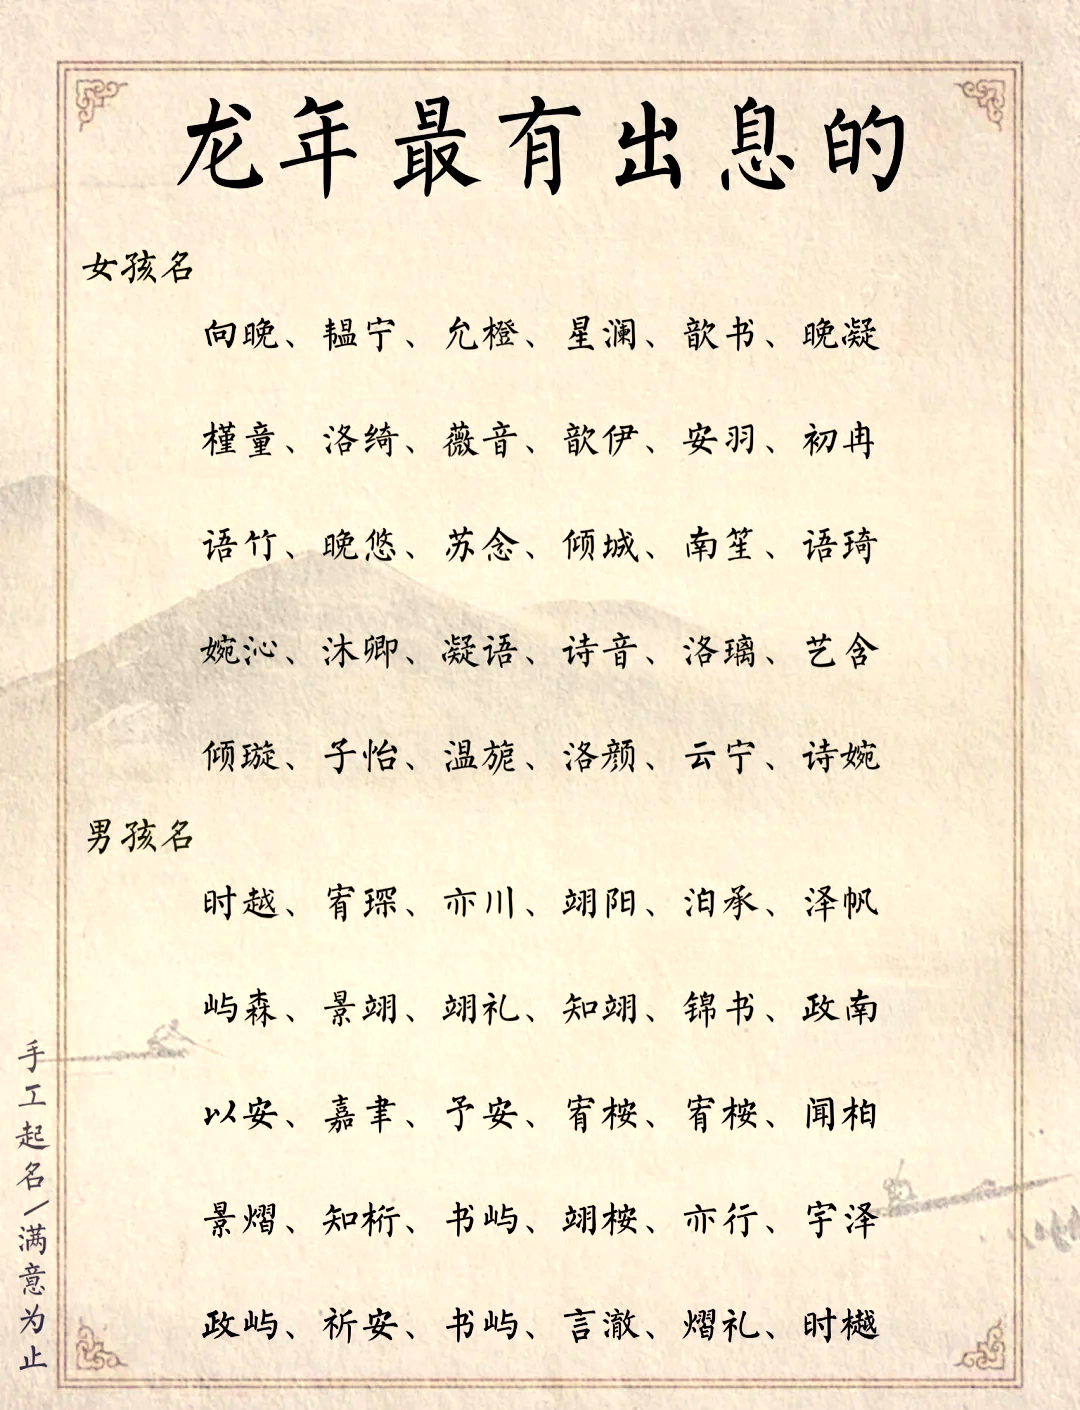 龙年最有出息的
女孩名
向晚、韫宁、允橙、星澜、歆书、晚凝
槿童、洛绮、薇音、歆伊、安羽、初冉
语竹、晚悠、苏念、倾城、南笙、语琦
婉沁、沐卿、凝语、诗音、洛璃、艺含
倾璇、子怡、温旎、洛颜、云宁、诗婉
男孩名
时越、宥琛、亦川、翊阳、泊承、泽帆
屿森、景翊、翊礼、知翊、锦书、政南
以安、嘉聿、予安、宥桉、宥桉、闻柏
景熠、知桁、书屿、翊桉、亦行、宇泽
政屿、祈安、书屿、言澈、熠礼、时樾
手工起名/满意为止